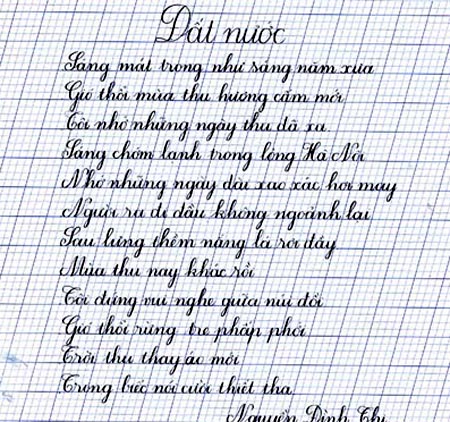 Đất nước
Sáng mát trong như sáng năm xưa
Gió thổi mùa thu hương cốm mới
Tôi nhớ những ngày thu đã xa
Sáng chớm lạnh trong lòng Hà Nội
Những ngày dài xao xác hơi may
Người ra đi đầu không ngoảnh lại
Sau lưng thềm nắng lá rơi đầy
Mùa thu nay khác rồi
Tôi đứng vui nghe giữa núi đồi
Gió thổi rừng tre phấp phới
Trời thu thay áo mới
Trong biếc nói cười thiết tha
Nguyễn Đình Thi